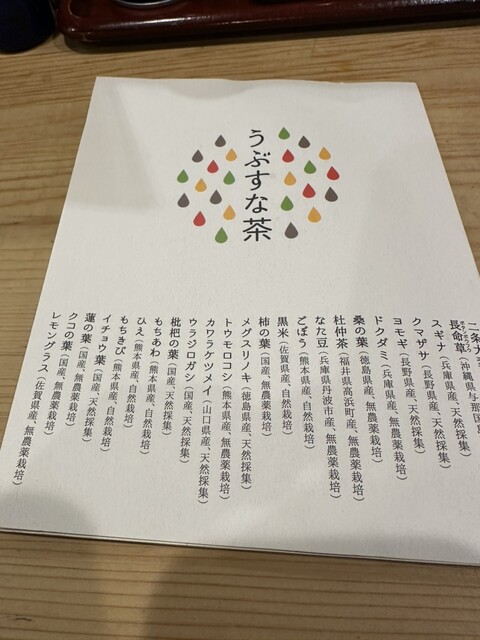 うぶすな茶
二条大麦
長命草（沖縄県与那国島
スギナ（兵庫県産、天然採集）
クマザサ（長野県産、天然採集）
ヨモギ（長野県産、無農薬栽培）
ドクダミ（兵庫県産、無農薬栽培）
桑の葉（徳島県産、無農薬栽培）
杜仲茶（福井県高浜町産、無農薬栽培）
なた豆（兵庫県丹波市産、無農薬栽培）
ごぼう（熊本県産、自然栽培）
黒米（佐賀県産、自然栽培）
柿の葉（国産、無農薬栽培）
メグスリノキ（徳島県産、天然採集）
トウモロコシ（熊本県産、無農薬栽培）
カワラケツメイ（山口県産、天然採集）
ウラジロガシ（国産、天然採集）
枇杷の葉（国産、天然採集）
もちあわ（熊本県産、自然栽培）
ひえ（熊本県産、自然栽培）
もちきび（熊本県産、自然栽培）
イチョウ葉（国産、天然採集）
蓮の葉（国産、天然採集）
クコの葉（国産、無農薬栽培）
レモングラス（佐賀県産、無農薬栽培）